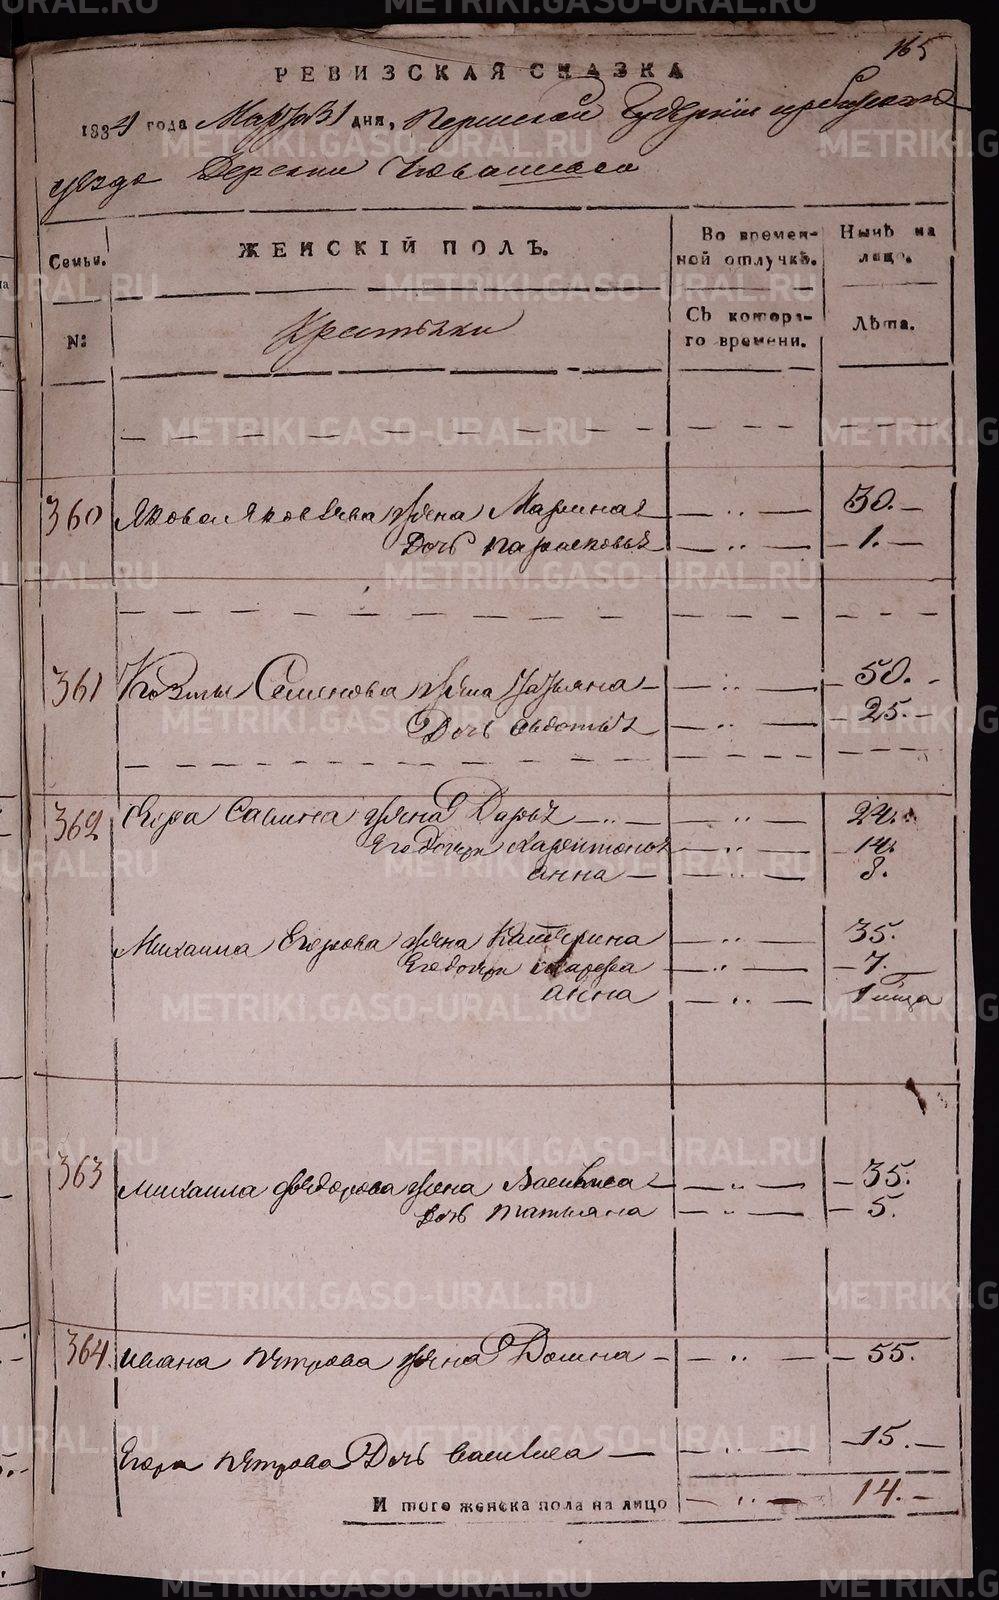 165
РЕВИЗСКАЯ СКАЗКА
1834 года Марта 31 дня, Пермской Губернии Ирбитского
уезда Деревни
Семьи. ЖЕНСКІЙ ПОЛЪ. Во времен-ной отлучкѣ. Нынѣ на лицо.
N: Крестьянки Съ котора-го времени. Лѣта.
360 Якова Яковлева жена Марина 30.
Дочь Парасковья 1.
361 Козмы Семенова жена Татьяна 50.
Дочь Авдотья 25.
362 Егора Савина жена Дарья 24.
Его Дочери Харитонья 14.
Анна 8.
Михаила Егорова жена Катерина 35.
Его дочери Марфа 7.
Анна 1
363 Михаила Федорова жена Василиса 35.
Дочь Татьяна 5.
364 Ивана Петрова жена Домна 55.
Егора Петрова Дочь Василиса 15.
И того женска пола на лицо 14.
METRIKI.GASO-URAL.RU